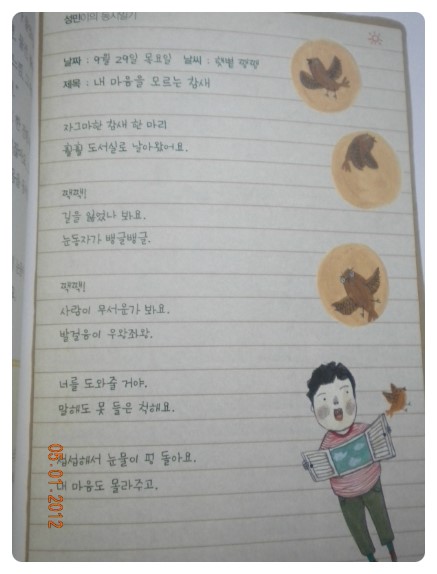 성민이의 동시일기
날짜 : 9월 29일 목요일 날씨 : 햇볕 쨍쨍
제목 : 내 마음을 모르는 참새
자그마한 참새 한 마리
휠휠 도서실로 날아왔어요.
짹짹!
길을 잃었나 봐요.
눈동자가 뱅글뱅글.
짹짹!
사람이 무서운가 봐요.
발걸음이 우왕좌왕.
너를 도와줄 거야.
말해도 못 들은 척해요.
섭섭해서 눈물이 핑 돌아요.
내 마음도 몰라주고.
05.01.2012